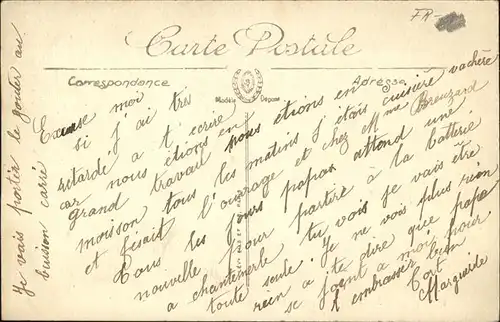 FR-
Carte Postale
Correspondance
Adresse
Modèle Déposé
Excuse moi
si j'ai tres
retardé a t'ecrire
car nous étions en nous étions en
grand travail
moisson tous les matins j étais cuisière vachère
et fésait l'ouvrage et chez Mme Breuzard
Tous les jours papa attend une
nouvelle pour partire a la batterie
a chantemerle tu vois je vais être
toute seule. Je ne vois plus rien
rien a te dire que papa
se joent a moi pour
t embrasser bien
fort
Marguerite
Je vais portér le goutér au
buisson carré